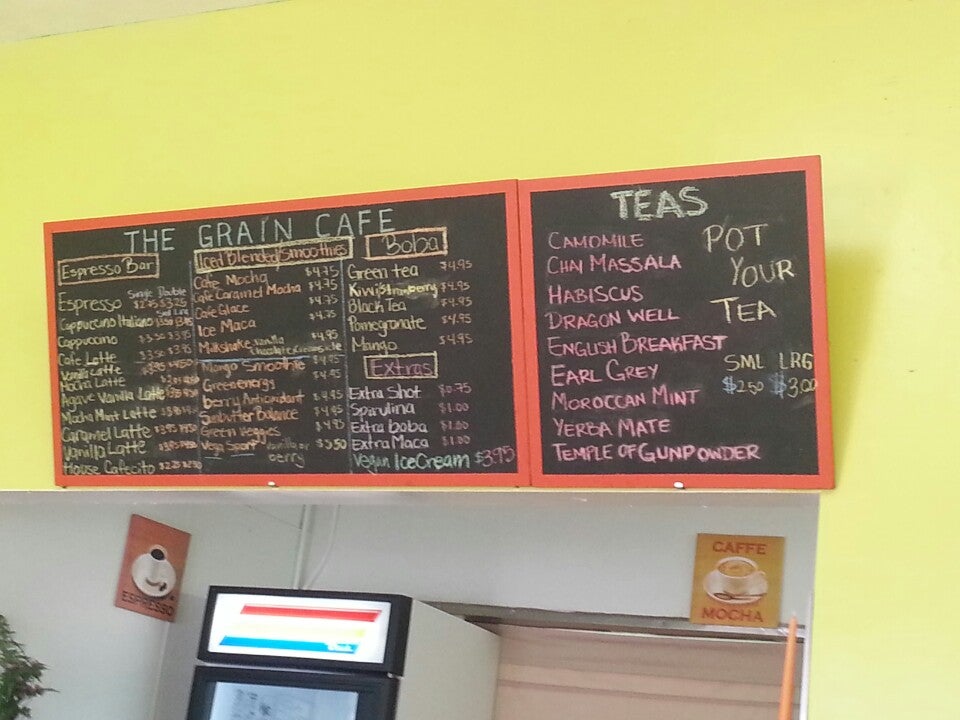 THE GRAIN CAFE
Espresso Bar
Single Double
Espresso $2.75 $3.25
Sml Lrg
Cappuccino Italiano
Cappuccino $3.50 $3.95
Cafe Latte $3.50 $3.95
Vanilla Latte $3.95 $4.50
Mocha Latte
Agave Vanilla Latte
Mocha Mint Latte
Caramel Latte
Vanilla Latte
House Cafecito
Iced Blended/Smoothies
Cafe Mocha $4.75
Cafe Caramel Mocha $4.75
Cafe Glace $4.75
Ice Maca $4.75
Milkshake vanilla $4.95
chocolate
Mango Smoothie $4.95
Greenenergy $4.95
berry Antioxidant $4.95
Sunbutter Balance $4.95
Green Veggies $4.95
Vega Sport vanilla or $5.50
berry
Boba
Green tea $4.95
Kiwi Strawberry $4.95
Black Tea $4.95
Pomegranate $4.95
Mango $4.95
Extras
Extra Shot $0.75
Spirulina $1.00
Extra boba $1.00
Extra Maca $1.00
Vegan IceCream $3.95
TEAS
CAMOMILE
CHAI MASSALA
HABISCUS
DRAGON WELL
ENGLISH BREAKFAST
EARL GREY
MOROCCAN MINT
YERBA MATE
TEMPLE OF GUNPOWDER
POT
YOUR
TEA
SML LRG
$2.50 $3.00
ESPRESSO
CAFFE
MOCHA